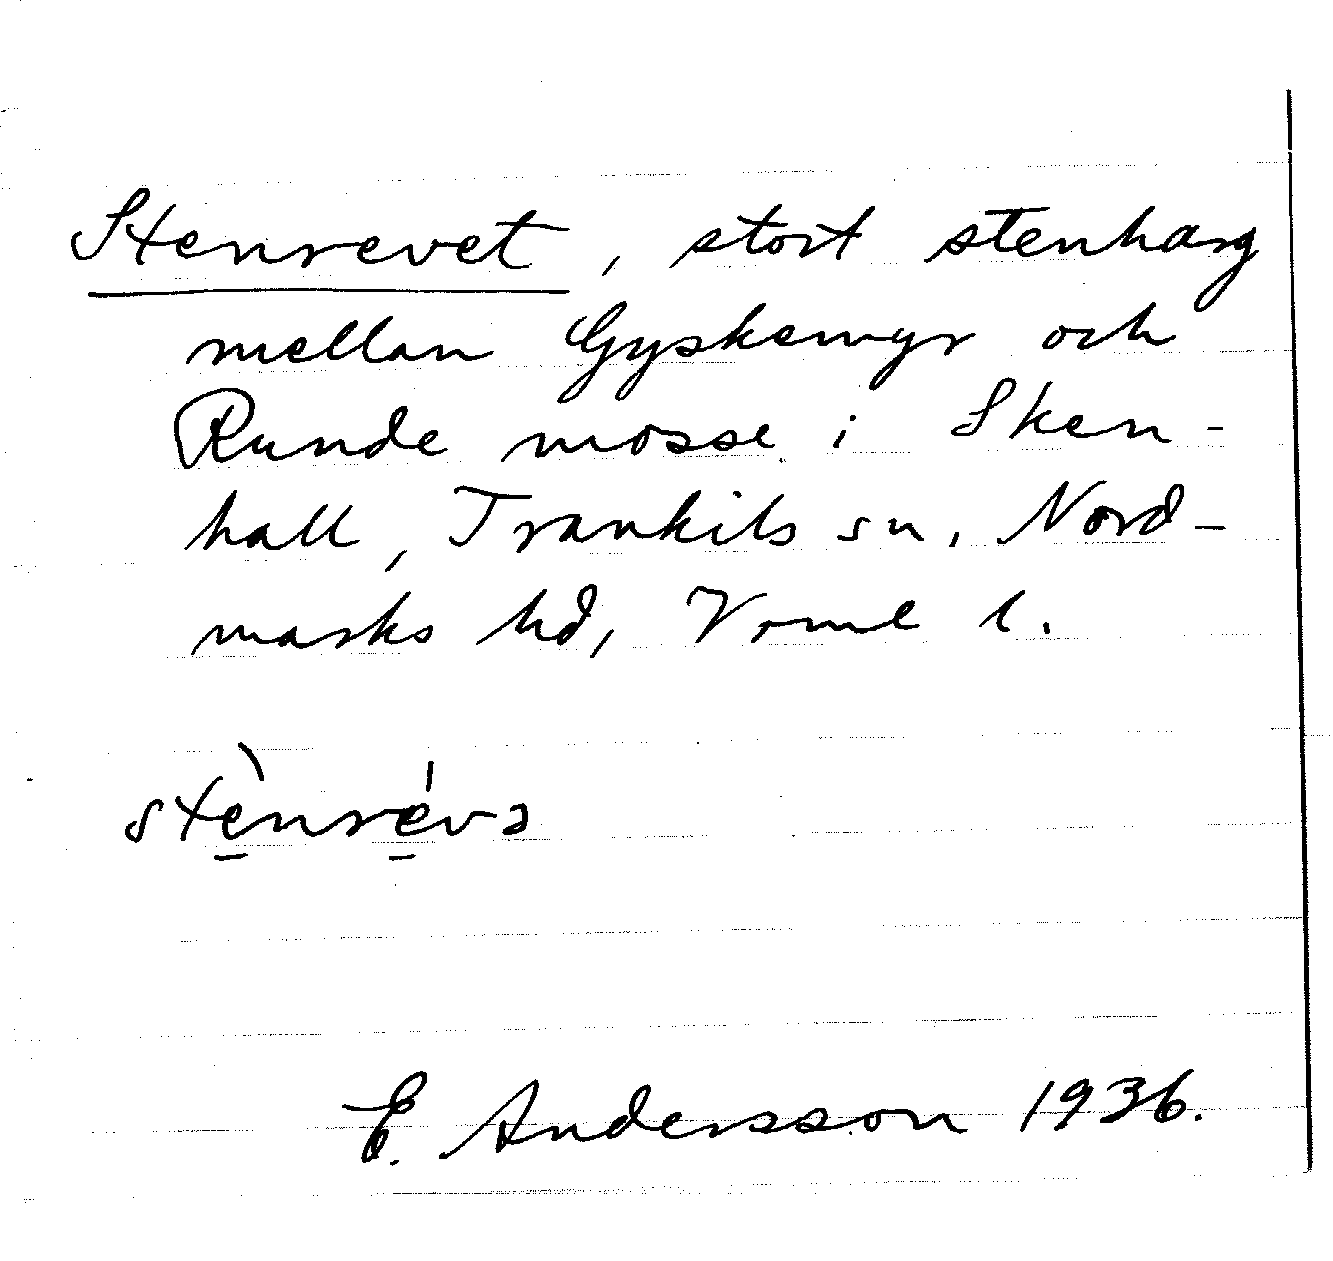 Stenrevet, stort stenharg
mellan Gyskemyr och
Runde mosse i Sken-
hall, Trankils sn, Nord-
marks hd, Vrml l.
stènréva
E. Andersson 1936.